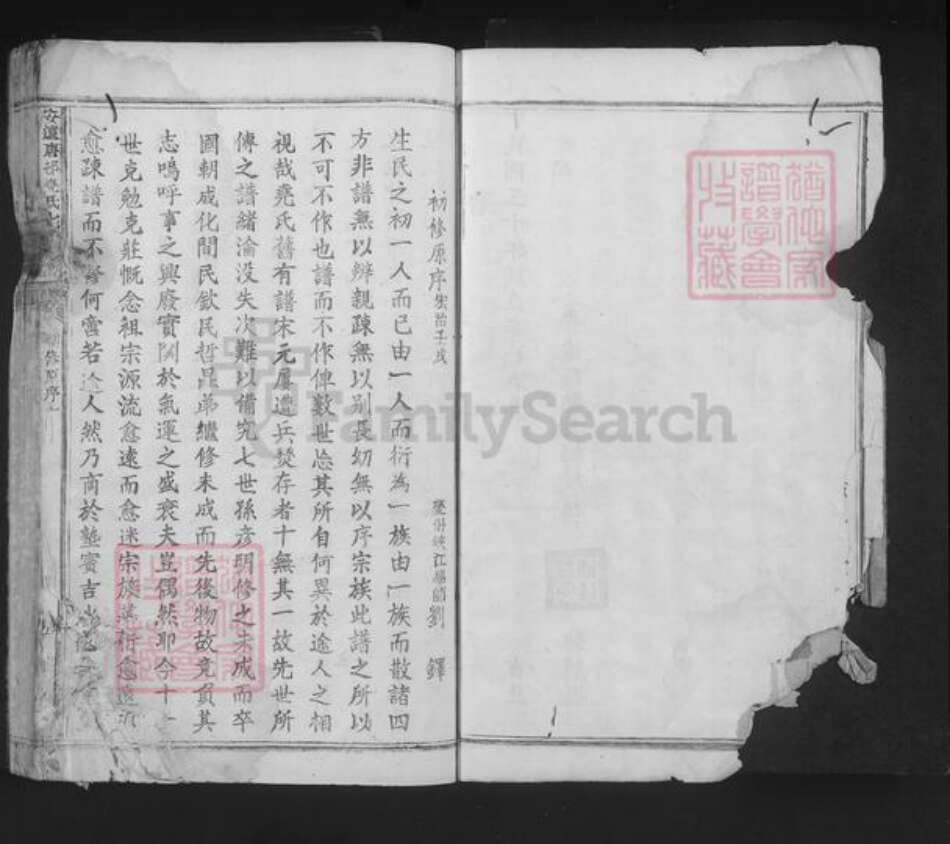 初修原序
劉鐸
生民之初一人而已由一人而衍為一族由一族而散諸四
方非譜無以辨親疎無以別長幼無以序宗族此譜之所以
不可不作也譜而不作俾數世㤀其所自何異於途人之相
視哉堯氏舊有譜宋元屢遭兵焚存者十無其一故先世所
傳之譜緒淪没失次難以備究七世孫彦明修之未成而卒
國朝成化間民欽民哲昆弟繼修未成而先後物故竟負其
志嗚呼事之興廢實関於氣運之盛衰夫豈偶然耶今十
世克勉克莊慨念祖宗源流愈遠而愈迷宗族
愈疎譜而不 何啻若途人然乃商於
猶他家譜學會收藏
FamilySearch